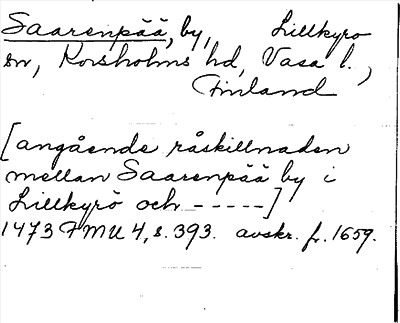 Saarenpää, by, Lillkyro
sn, Korsholms hd, Vasa l.,
Finland
[angående råskillnaden
mellan Saarenpää by i
Lillkyrö och -----]
1473 FMU 4, s. 393. avskr. fr. 1659.